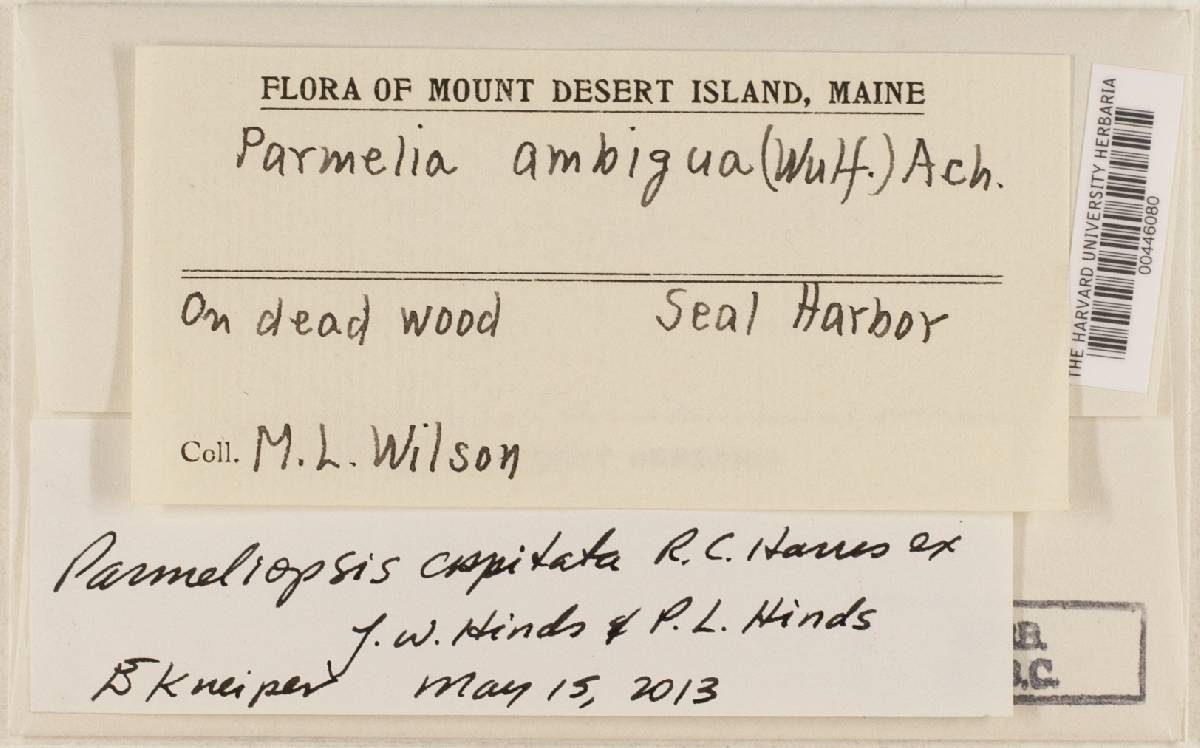 FLORA OF MOUNT DESERT ISLAND, MAINE
Parmelia ambigua (Wulf.) Ach.
On dead wood Seal Harbor
Coll. M. L. Wilson
THE HARVARD UNIVERSITY HERBARIA
00446080
Parmeliopsis capitata R. C. Harris ex
J. W. Hinds & P. L. Hinds
E Kneiper May 15, 2013